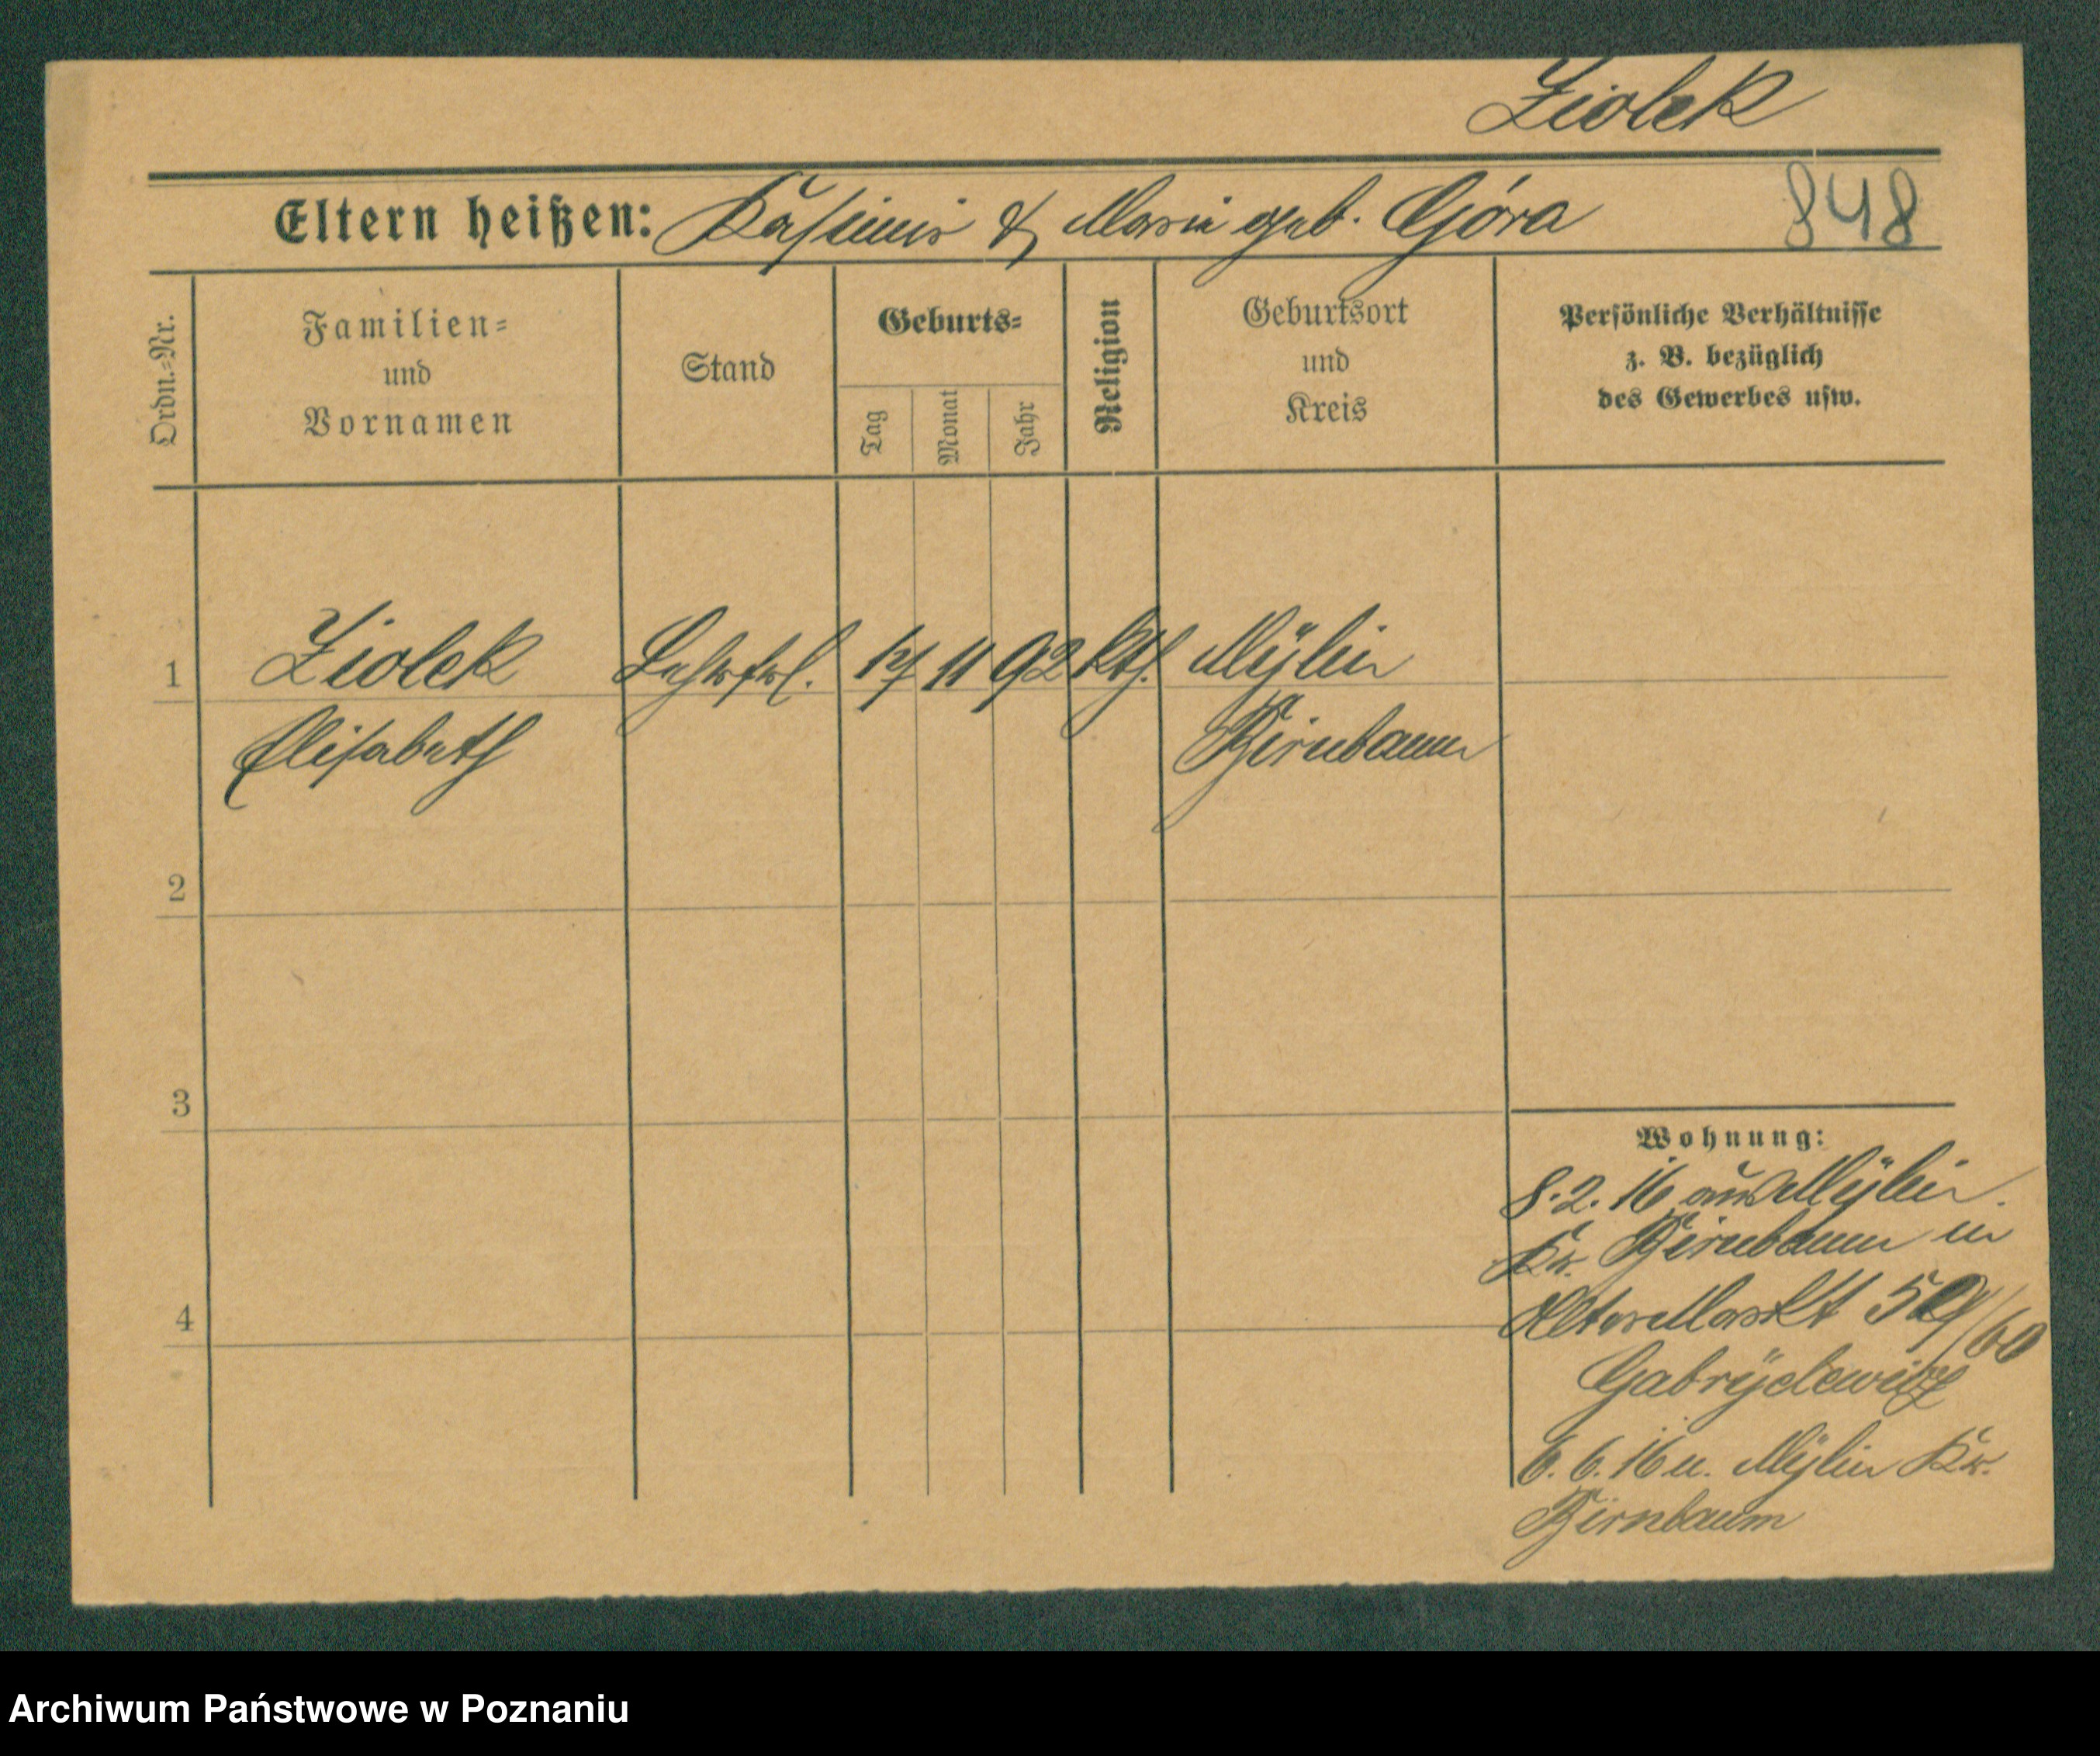 Ziolek
Eltern heißen: Kasimir & Marie geb. Góra 848
Ordn.=Nr.
Familien=
und
Vornamen
Stand
Geburts=
Tag
Monat
Jahr
Religion
Geburtsort
und
Kreis
Persönliche Verhältnisse
z. B. bezüglich
des Gewerbes usw.
1 Ziolek 11 92 kth. Mylin
Elisabeth Birnbaum
2
3
Wohnung:
8.2.16 aus Mylin
Kr. Birnbaum in
4
Alter Markt 59/60
Gabryelewicz
6.6.16 n. Mylin Kr.
Birnbaum
Archiwum Państwowe w Poznaniu